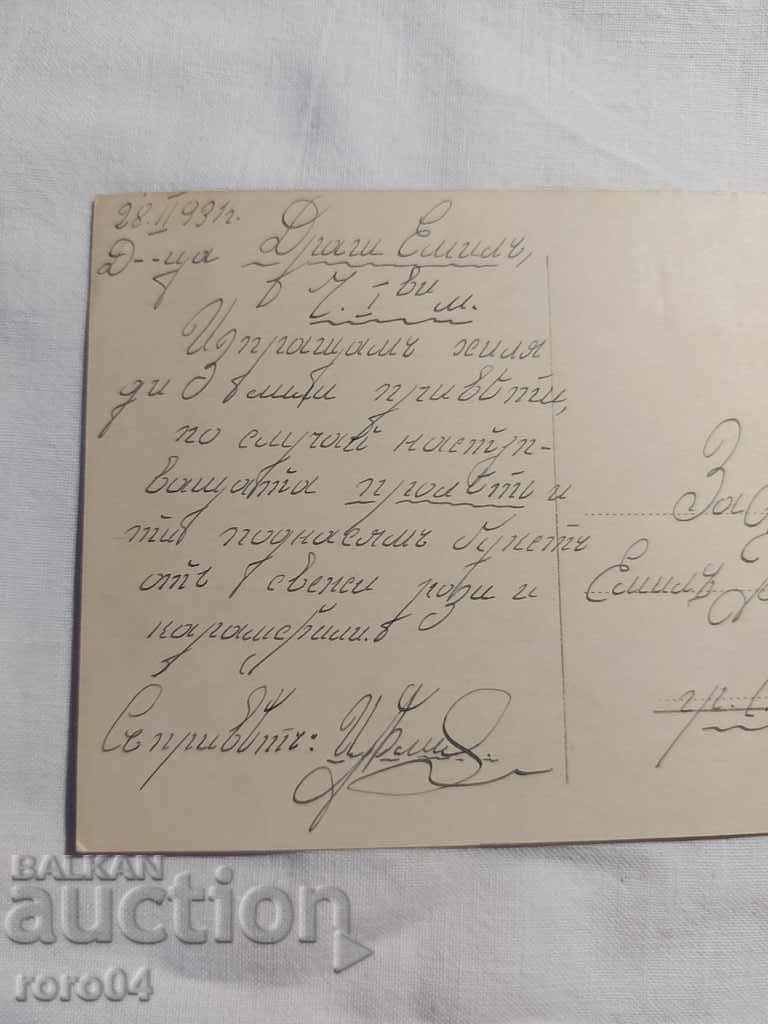 28.II 931г.
Д--ца Драги Емилъ,
I ви м.
Изпращамъ хиля
ди мили привѣти,
по случай настѫп-
ващата пролѣть и
ти поднасямъ букетъ
отъ свежи рози и
карамфили.
Съ привѣтъ:
За
Емилъ
гр.
BALKAN
auction
roro04